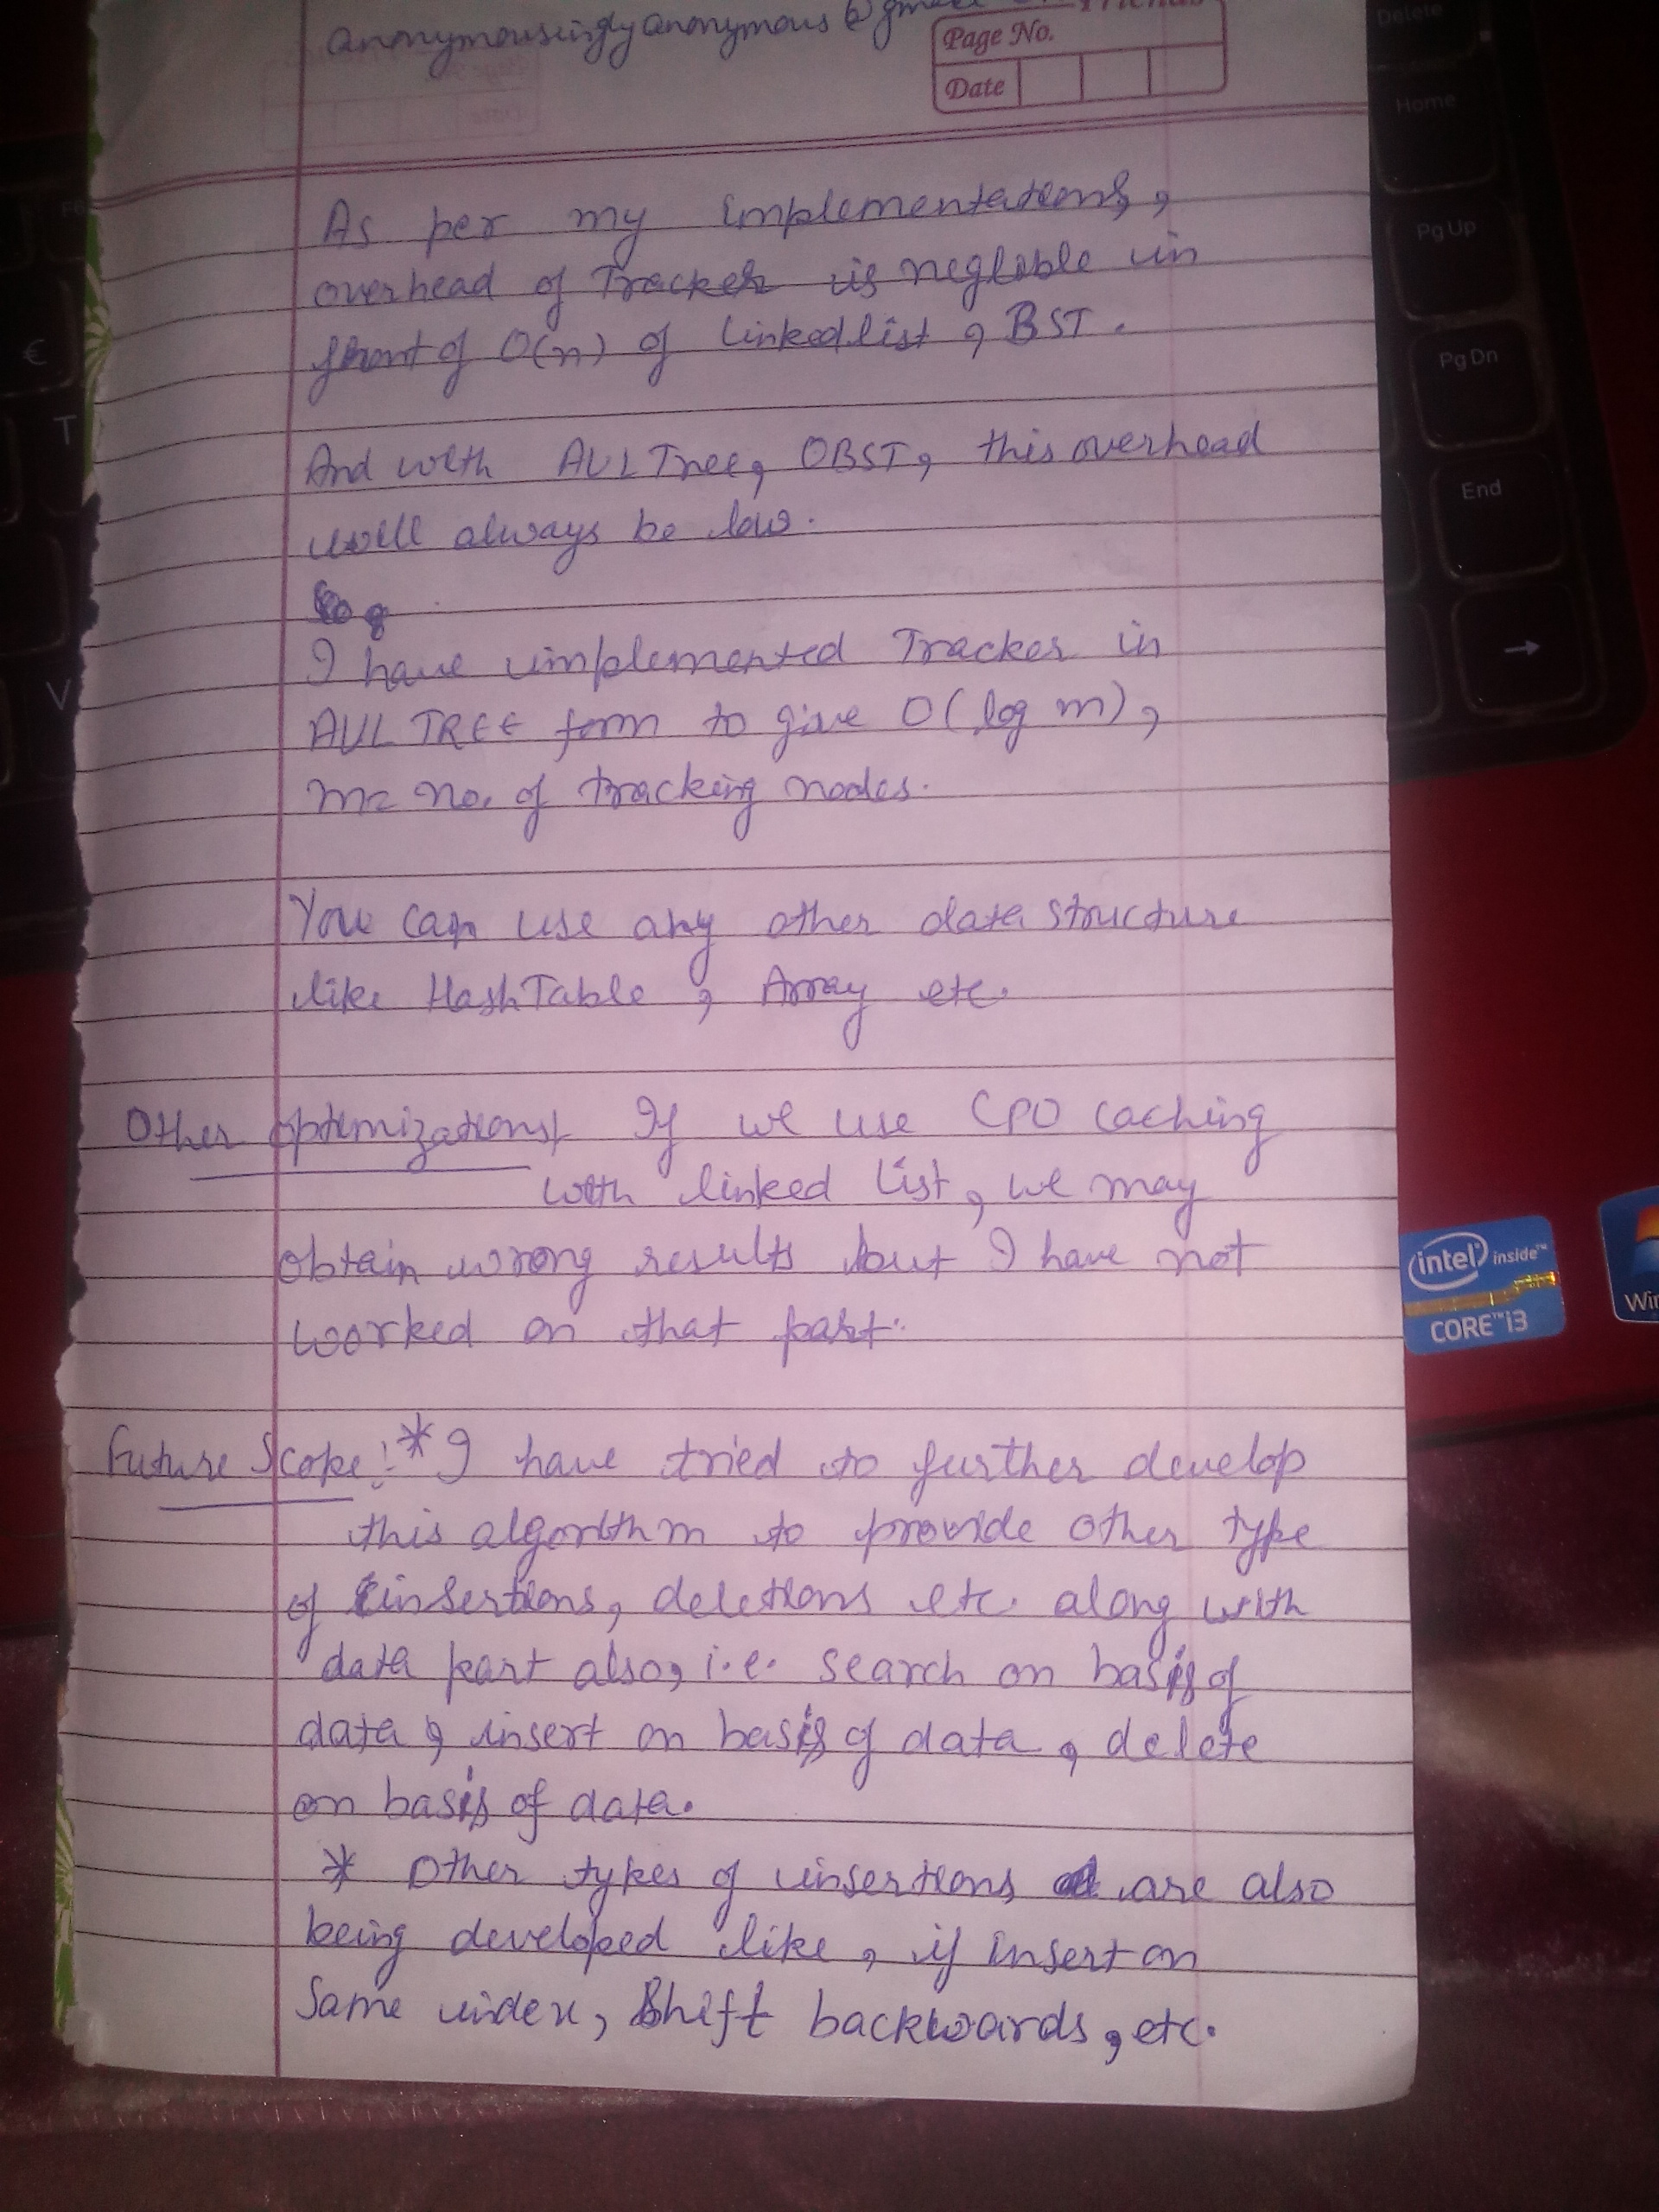 anonymousinglyanonymous @ gmail
Friends
Page No.
Date
As per my implementations,
overhead of Tracker is neglible in
front of O(n) of linkedlist, BST.
And with AVL Tree, OBST, this overhead
will always be low.
I have implemented Tracker in
AVL TREE form to give O(log m),
m= no. of tracking nodes.
You can use any other data structure
like HashTable, Array etc.
Other optimizations If we use CPU caching
with linked list, we may
obtain wrong results but I have not
worked on that part.
Future Scope: * I have tried to further develop
this algorithm to provide other type
of insertions, deletions etc. along with
data part also, i.e. search on basis of
data, insert on basis of data, delete
on basis of data.
* Other types of insertions are also
being developed like, if insert on
Same index, Shift backwards, etc.
Delete
Home
PgUp
PgDn
End
→
€
T
V
intel inside™
CORE™i3